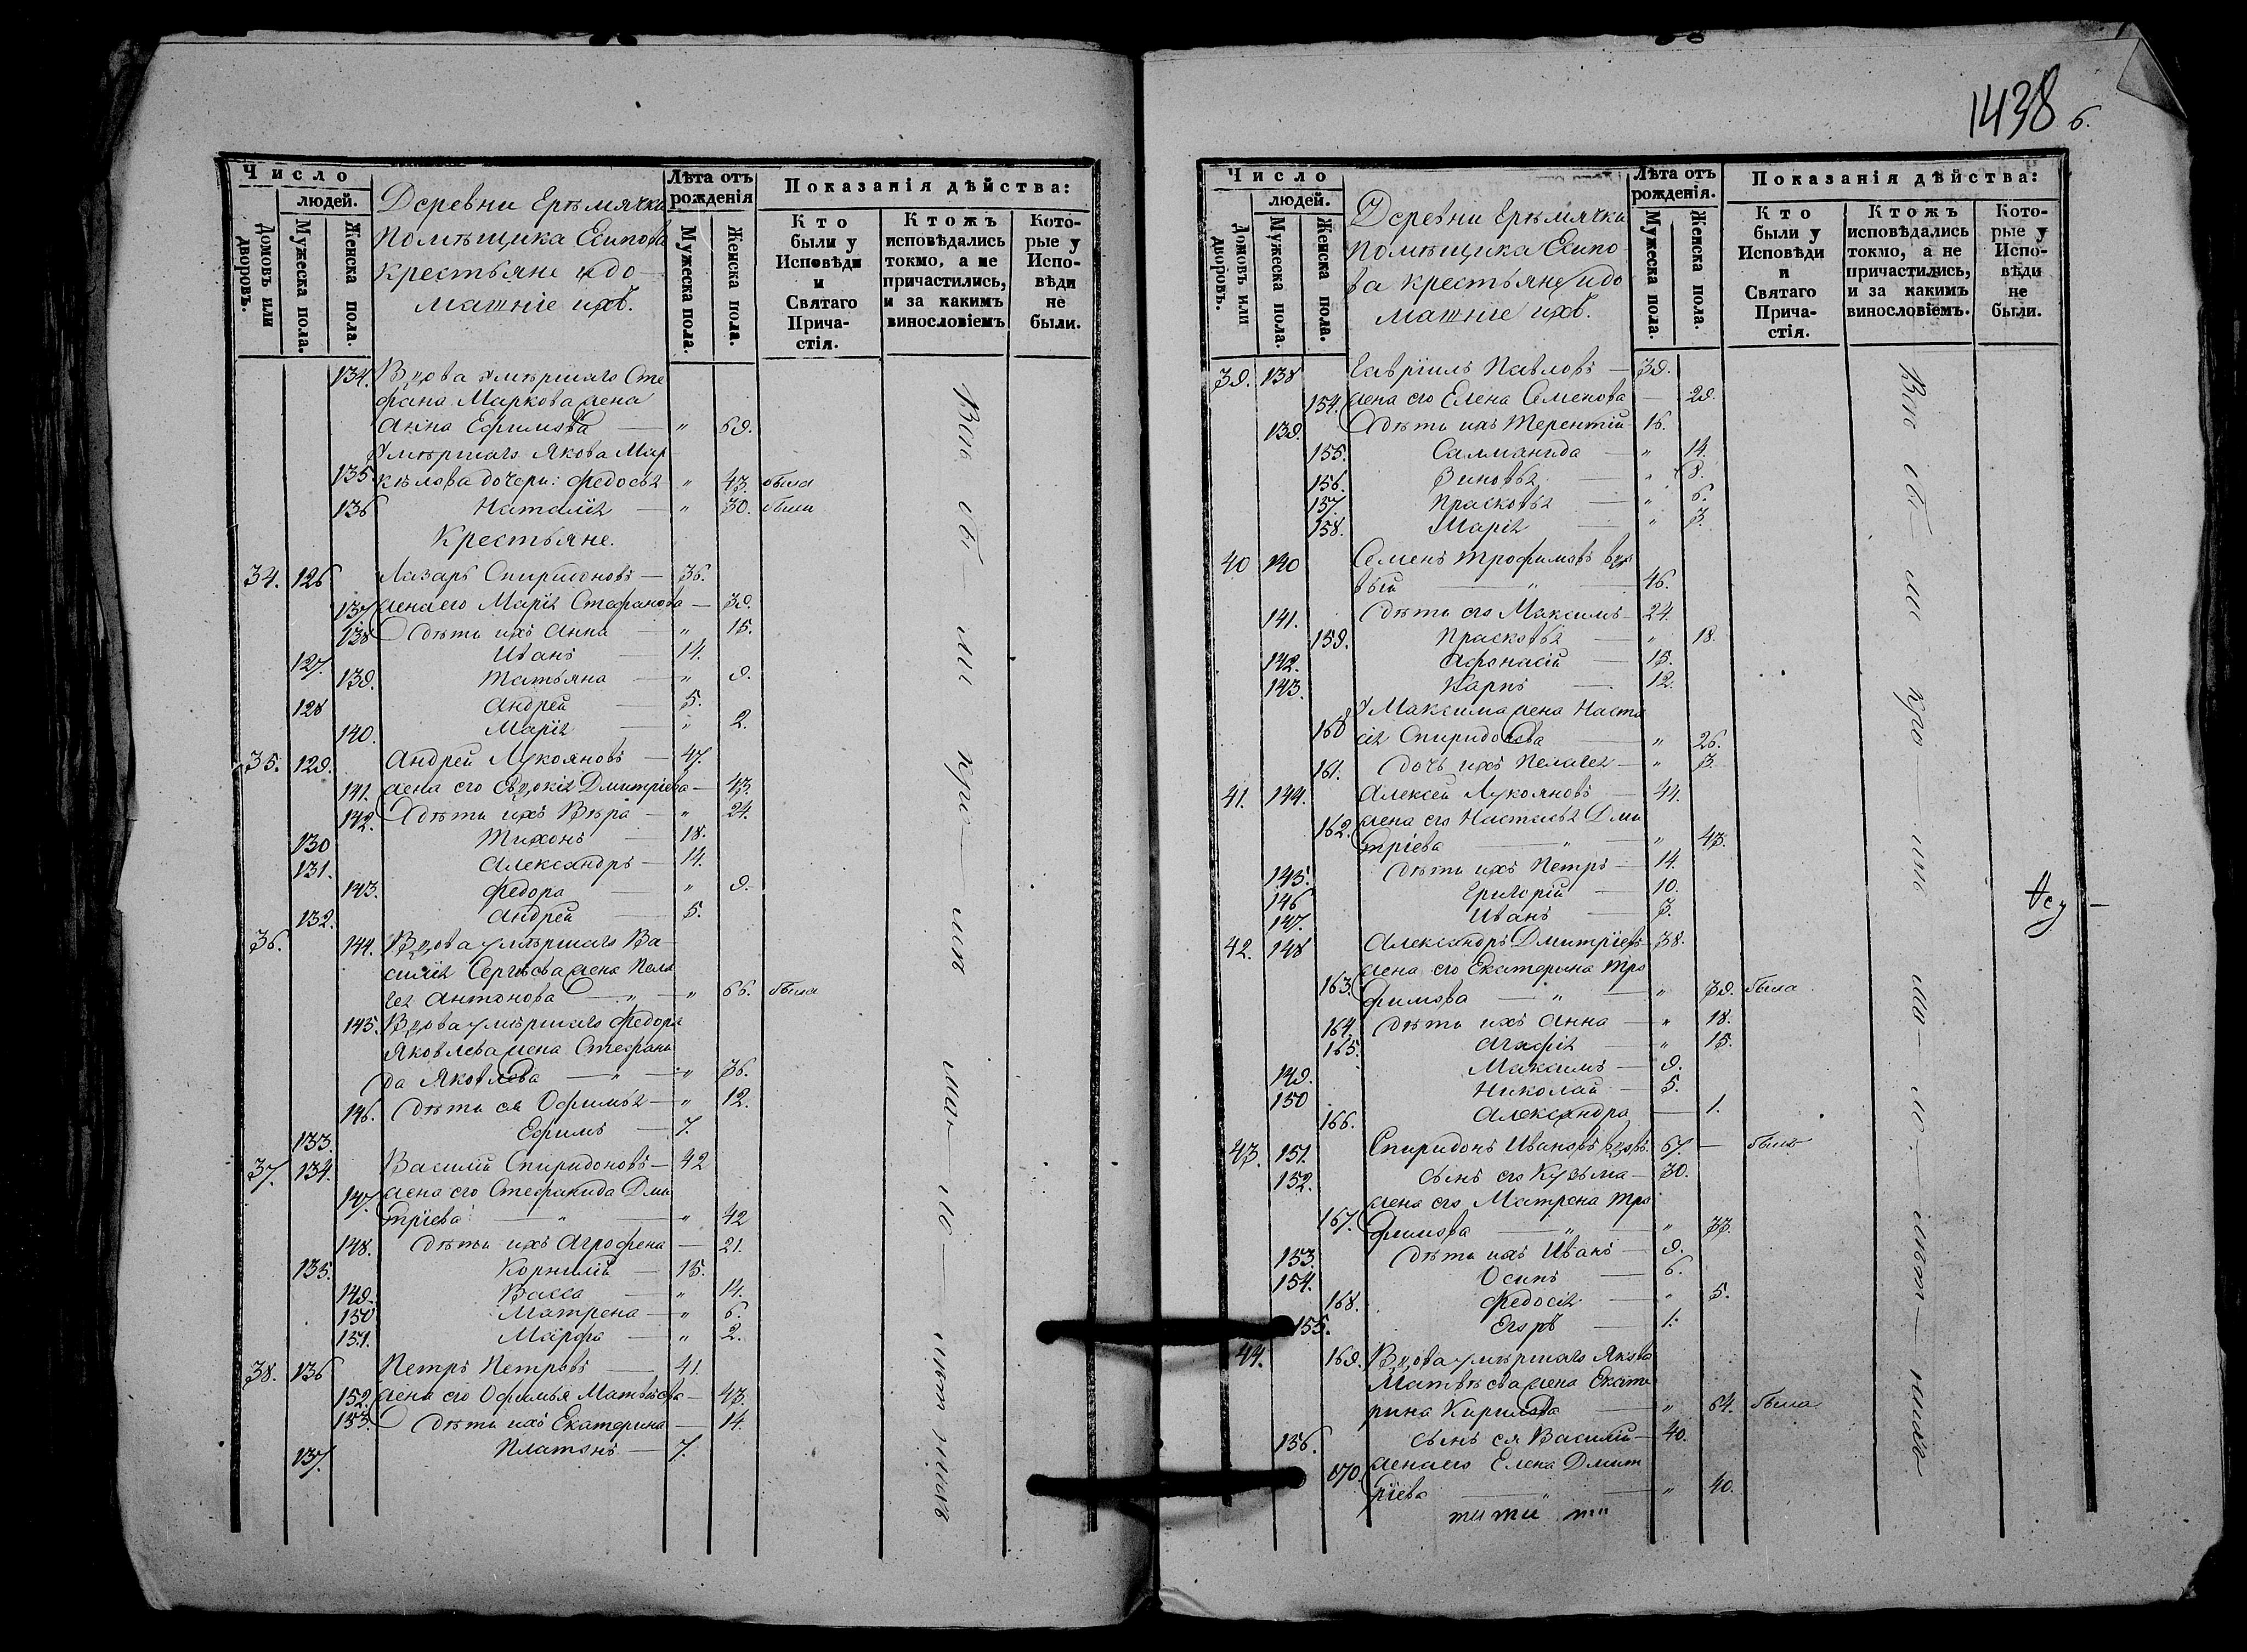 1438
б.
Число
людей.
Домовъ или дворовъ.
Мужеска пола.
Женска пола.
Деревни Ерѣмячка
Помѣщика Есипова
крестьяне и до-
машніе ихъ.
Лѣта отъ рожденія
Мужеска пола.
Женска пола.
Показанія дѣйства:
Кто были у Исповѣди и Святаго Прича-стія.
Ктожъ исповѣдались токмо, а не причастились, и за какимъ винословіемъ
Кото-рые у Испо-вѣди не были.
134. Вдова умѣршаго Сте
фана Маркова жена
Анна Ефимова — " 69.
Умѣршаго Якова Мар
135 кѣлова дочери: Федосья " 43. была
136 Наталія — " 30. были
Крестьяне.
34. 126 Лазарь Спиридоновъ — 36.
137 жена его Марія Стефанова — 39.
138 Дѣти ихъ Анна — " 15.
127. Иванъ — 14.
139. Татьяна — " 9.
128 Андрей — 5.
140. Марія — " 2.
35. 129. Андрей Лукояновъ — 47.
141. жена его Евдокія Дмитріева — 43.
142. Дѣти ихъ Вѣра — " 24.
130 Тихонъ — 18.
131. Александръ — 14.
143. Федора — " 9.
132. Андрей — 5.
36. 144. Вдова умѣршаго Ва-
силія Сергѣева жена Пела
гея Антонова — " — " 66. была
145. Вдова умѣршаго Федора
Яковлева жена Стефани
да Яковлева — " — " 36.
146. Дѣти ея Офимья — " 12.
133. Ефимъ — 7.
37. 134. Василій Спиридоновъ — 42
147. жена его Стефанида Дми
тріева — " — " 42
148. дѣти ихъ Агрофена — 21.
135. Корнилій — 15.
149. Васса — " 14.
150 Матрена — " 6.
151. Марфа — " 2.
38. 136 Петръ Петровъ — 41.
152. жена его Офимья Матвѣева — 43.
153. дѣти ихъ Екатерина — 14.
137. Платонъ — 7.
Число
людей.
Домовъ или дворовъ.
Мужеска пола.
Женска пола.
Деревни Ерѣмячка
помѣщика Есипо-
ва крестьяне и до
машніе ихъ.
Лѣта отъ рожденія.
Мужеска пола.
Женска пола.
Показанія дѣйства:
Кто были у Исповѣди и Святаго Прича-стія.
Ктожъ исповѣдались токмо, а не причастились, и за какимъ винословіемъ.
Кото-рые у Испо-вѣди не были.
39. 138 Гавріилъ Павловъ — 39.
154. жена его Елена Семенова — 29.
139. Дѣти ихъ Терентій 16.
155. Саломанида — " 14.
156. Зиновья — " 8.
157. Прасковья — " 6.
158. Марія — " 3.
40 140 Семенъ Трофимовъ вдо
вый — " — 46.
141. дѣти его Максимъ — 24.
159. Прасковья — " 18.
142. Афонасій — 15.
143. Карпъ — 12.
У Максима жена Наста
160 сія Спиридонова — " 26.
161. дочь ихъ Пелагея — " 3.
41. 144. Алексей Лукояновъ — 44.
162. жена его Настасья Дми
тріева — " — " 43.
145. дѣти ихъ Петръ — 14.
146 Григорій — 10.
147. Иванъ — 3.
42. 148 Александръ Дмитріевъ 38.
163. жена его Екатерина Тро
фимова — " — " 39. была
164. дѣти ихъ Анна — " 18.
165. Агафія — " 15.
149. Максимъ — 9.
150 Николай — 5.
166. Александра — 1.
43. 151. Спиридонъ Ивановъ вдовъ. 67. — былъ
152. сынъ его Кузьма — 30.
167. жена его Матрена Тро
фимова — " — " 33.
153. дѣти ихъ Иванъ — 9.
154. Осипъ — 6.
168. Федосія — " 5.
155. Егоръ — 1.
44. 169. Вдова умѣршаго Якова
Матвѣева жена Екате
рина Кирилова — " 64. была
156. сынъ ея Василій — 40.
170. жена его Елена Дмит
ріева — " — " 40.